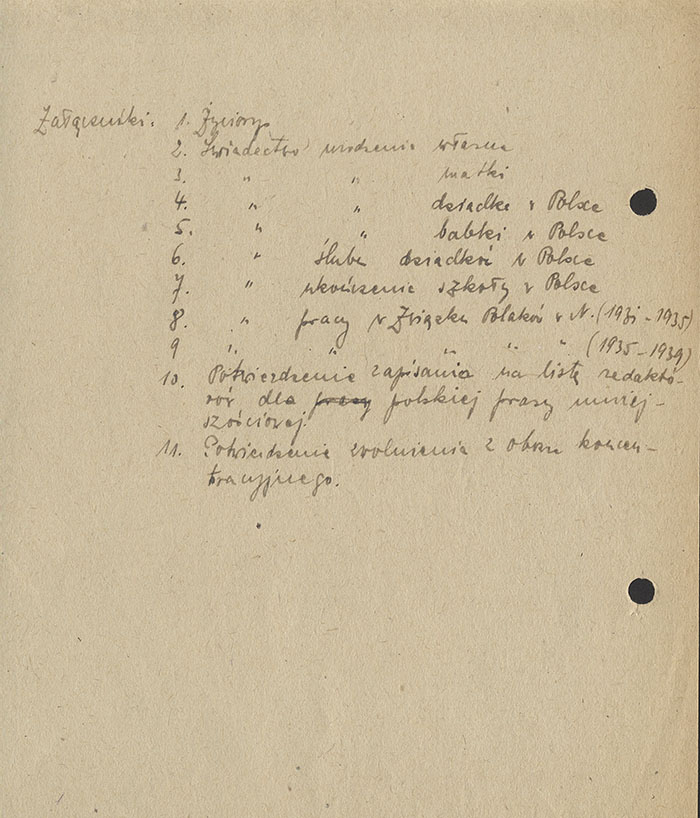 Załączniki: 1. Życiorys
2. Świadectwo urodzenia własne
3. " " matki
4. " " dziadka w Polsce
5. " " babki w Polsce
6. " ślubu dziadków w Polsce
7. " ukończenia szkoły w Polsce
8. " pracy w Związku Polaków w N. (1931-1935)
9 " " " " " (1935-1939)
10. Potwierdzenie zapisania na listę redakto-
rów dla pracy polskiej prasy mniej-
szościowej.
11. Potwierdzenie zwolnienia z obozu koncen-
tracyjnego.